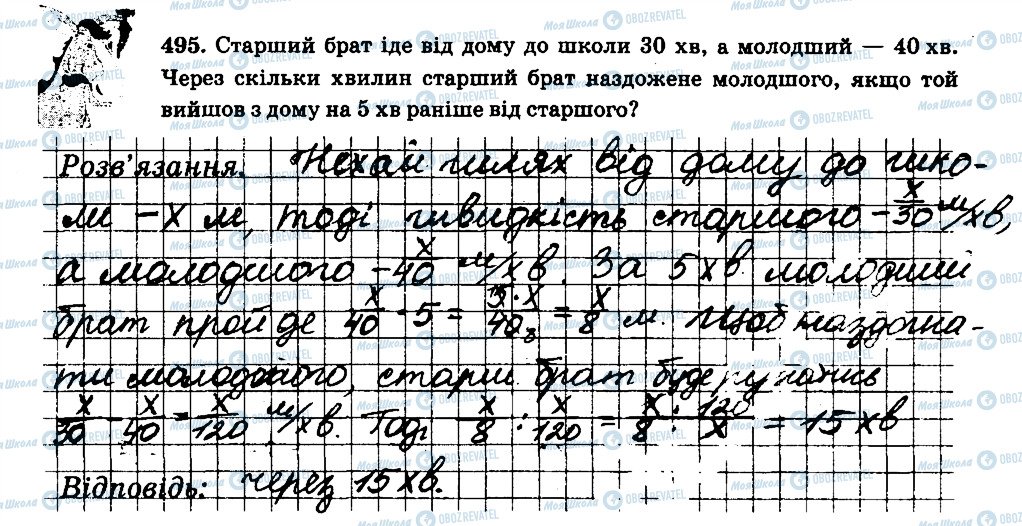 495. Старший брат іде від дому до школи 30 хв, а молодший — 40 хв.
Через скільки хвилин старший брат наздожене молодшого, якщо той
вийшов з дому на 5 хв раніше від старшого?
Розв'язання. Нехай шлях від дому до шко-
ли – x м, тоді швидкість старшого – x/30 м/хв,
а молодшого – x/40 м/хв. За 5 хв молодший
брат пройде x/40 · 5 = 5·x/40 = x/8 м. Щоб наздогна-
ти молодшого, старш. брат буде рухатись
x/30 – x/40 = x/120 м/хв. Тоді x/8 : x/120 = x/8 : 120/x = 15 хв
Відповідь: через 15 хв.